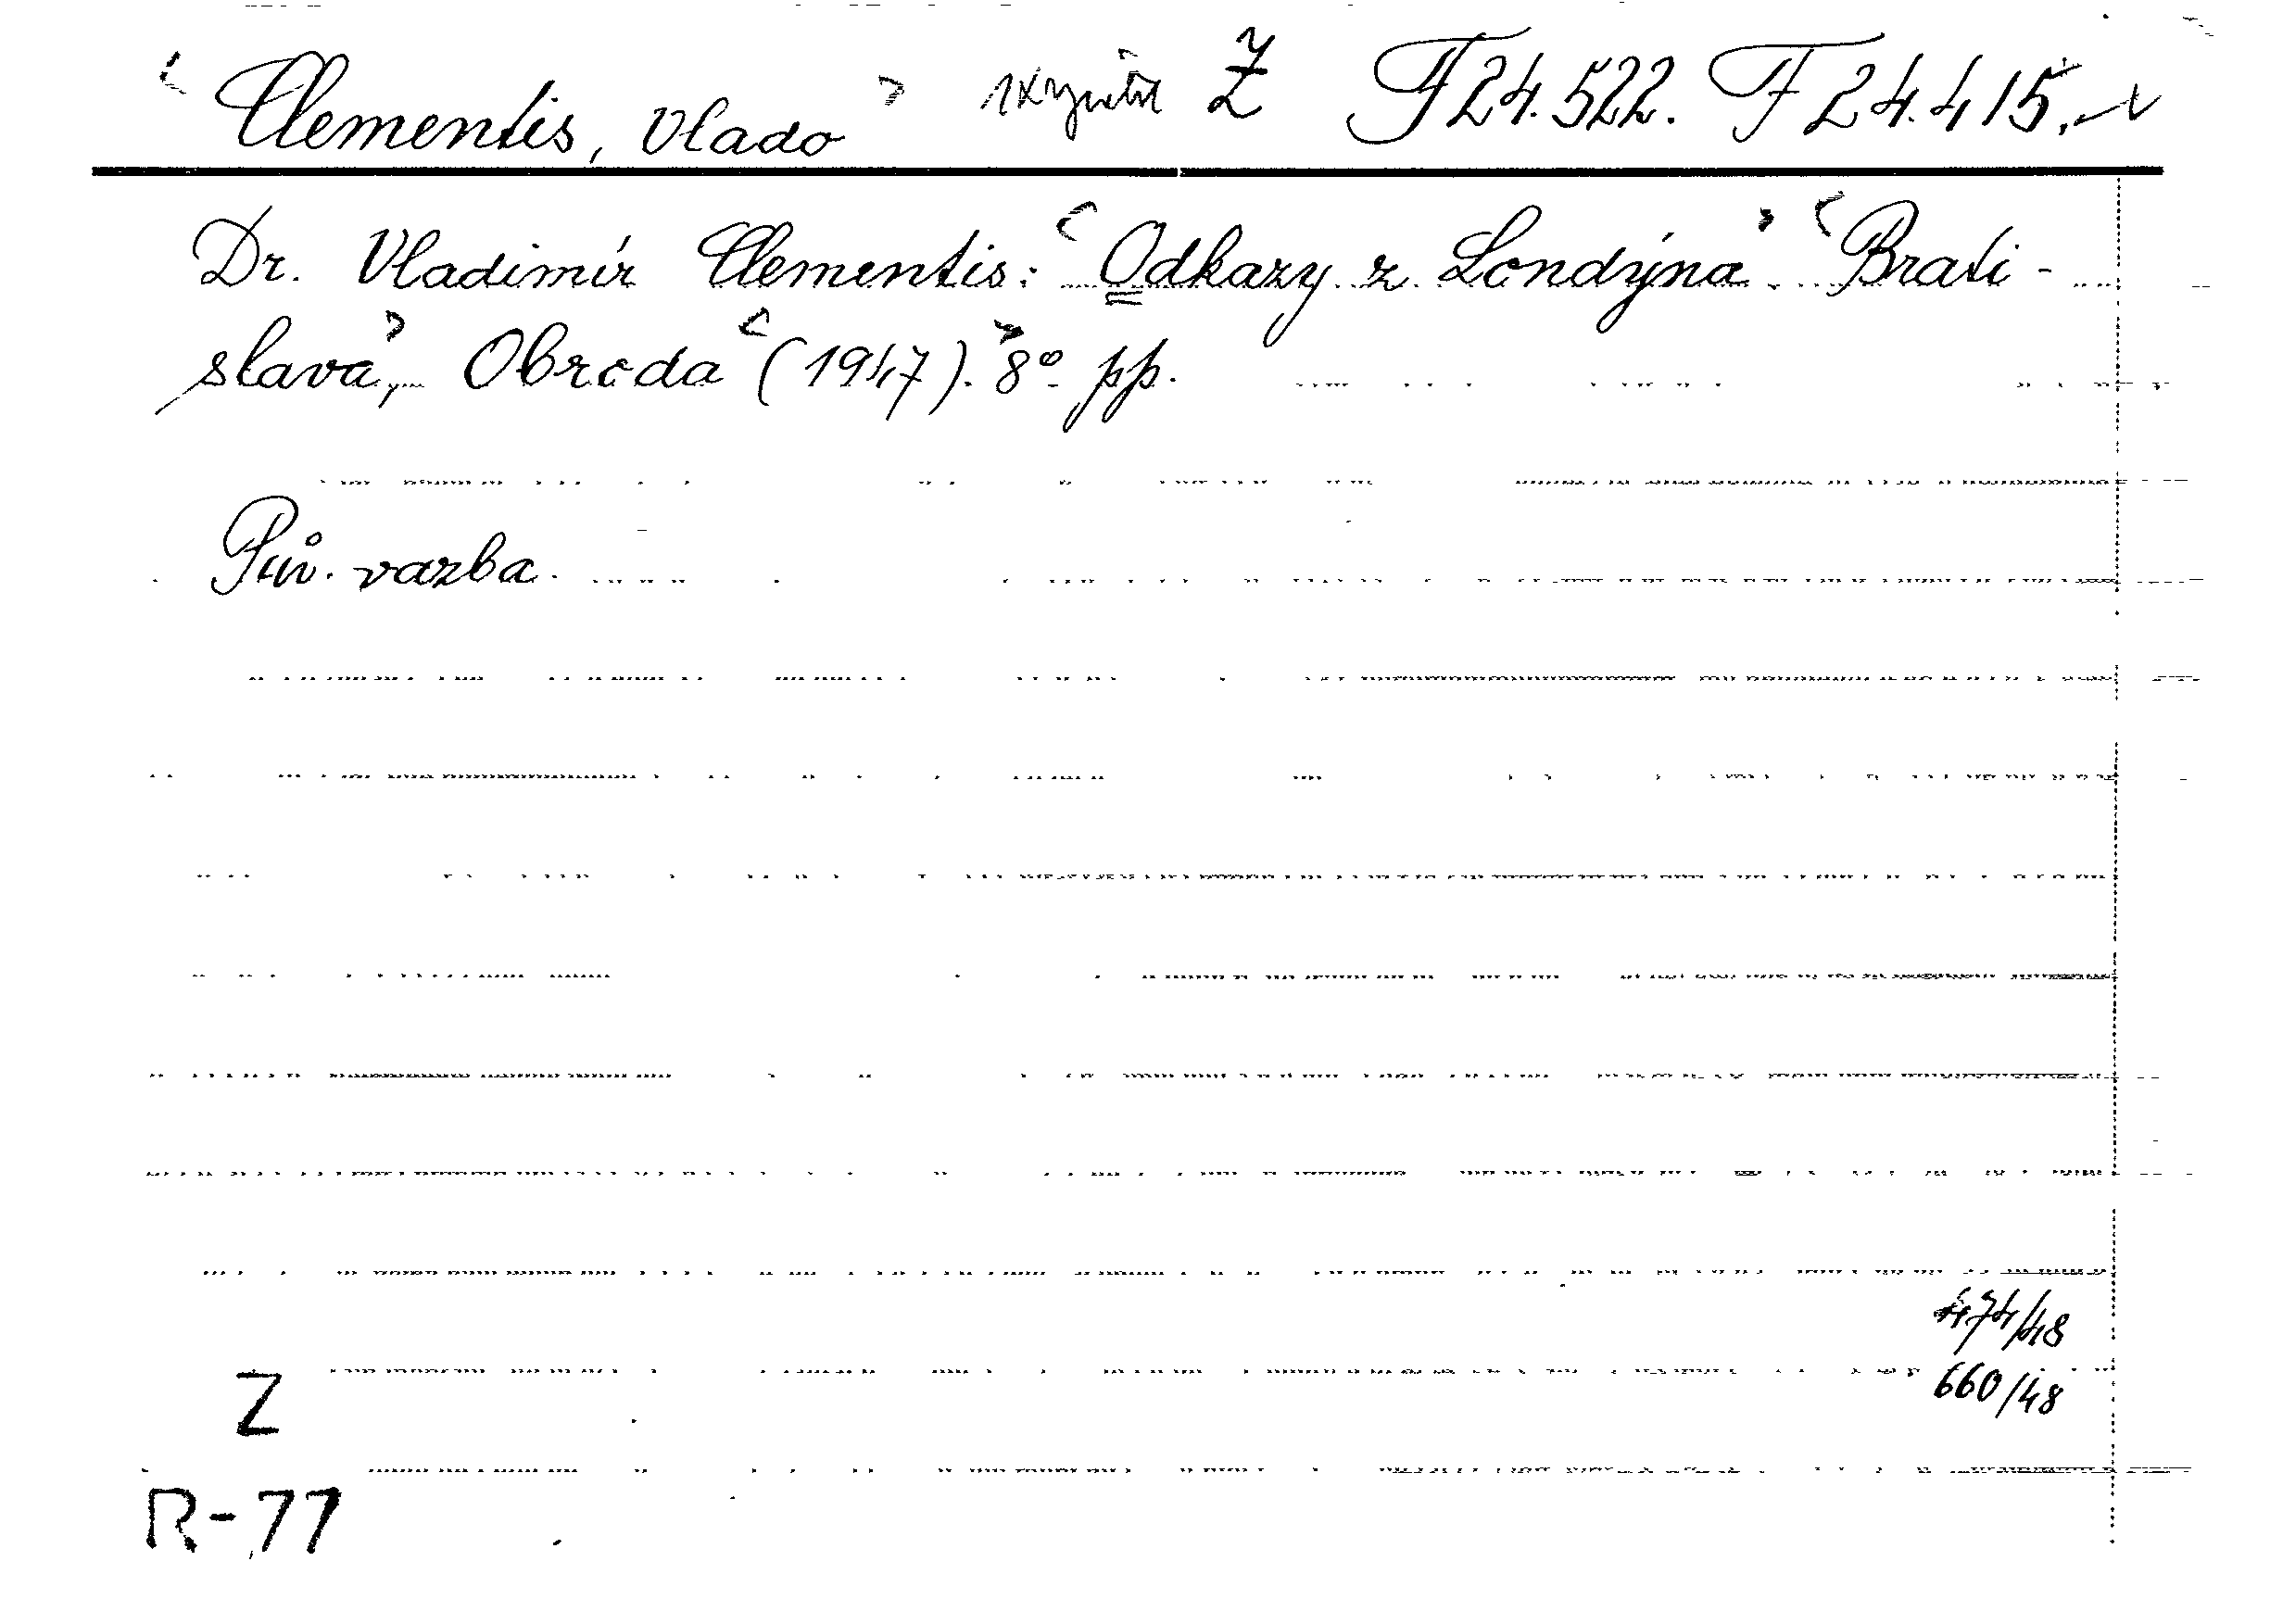 Clementis, Vlado Z F 24.522. F 24.415.
Dr. Vladimír Clementis: Odkazy z Londýna. Brati-
slava, Obroda (1947). 8° pp.
Pův. vazba.
474/48
660/48
Z
R-77